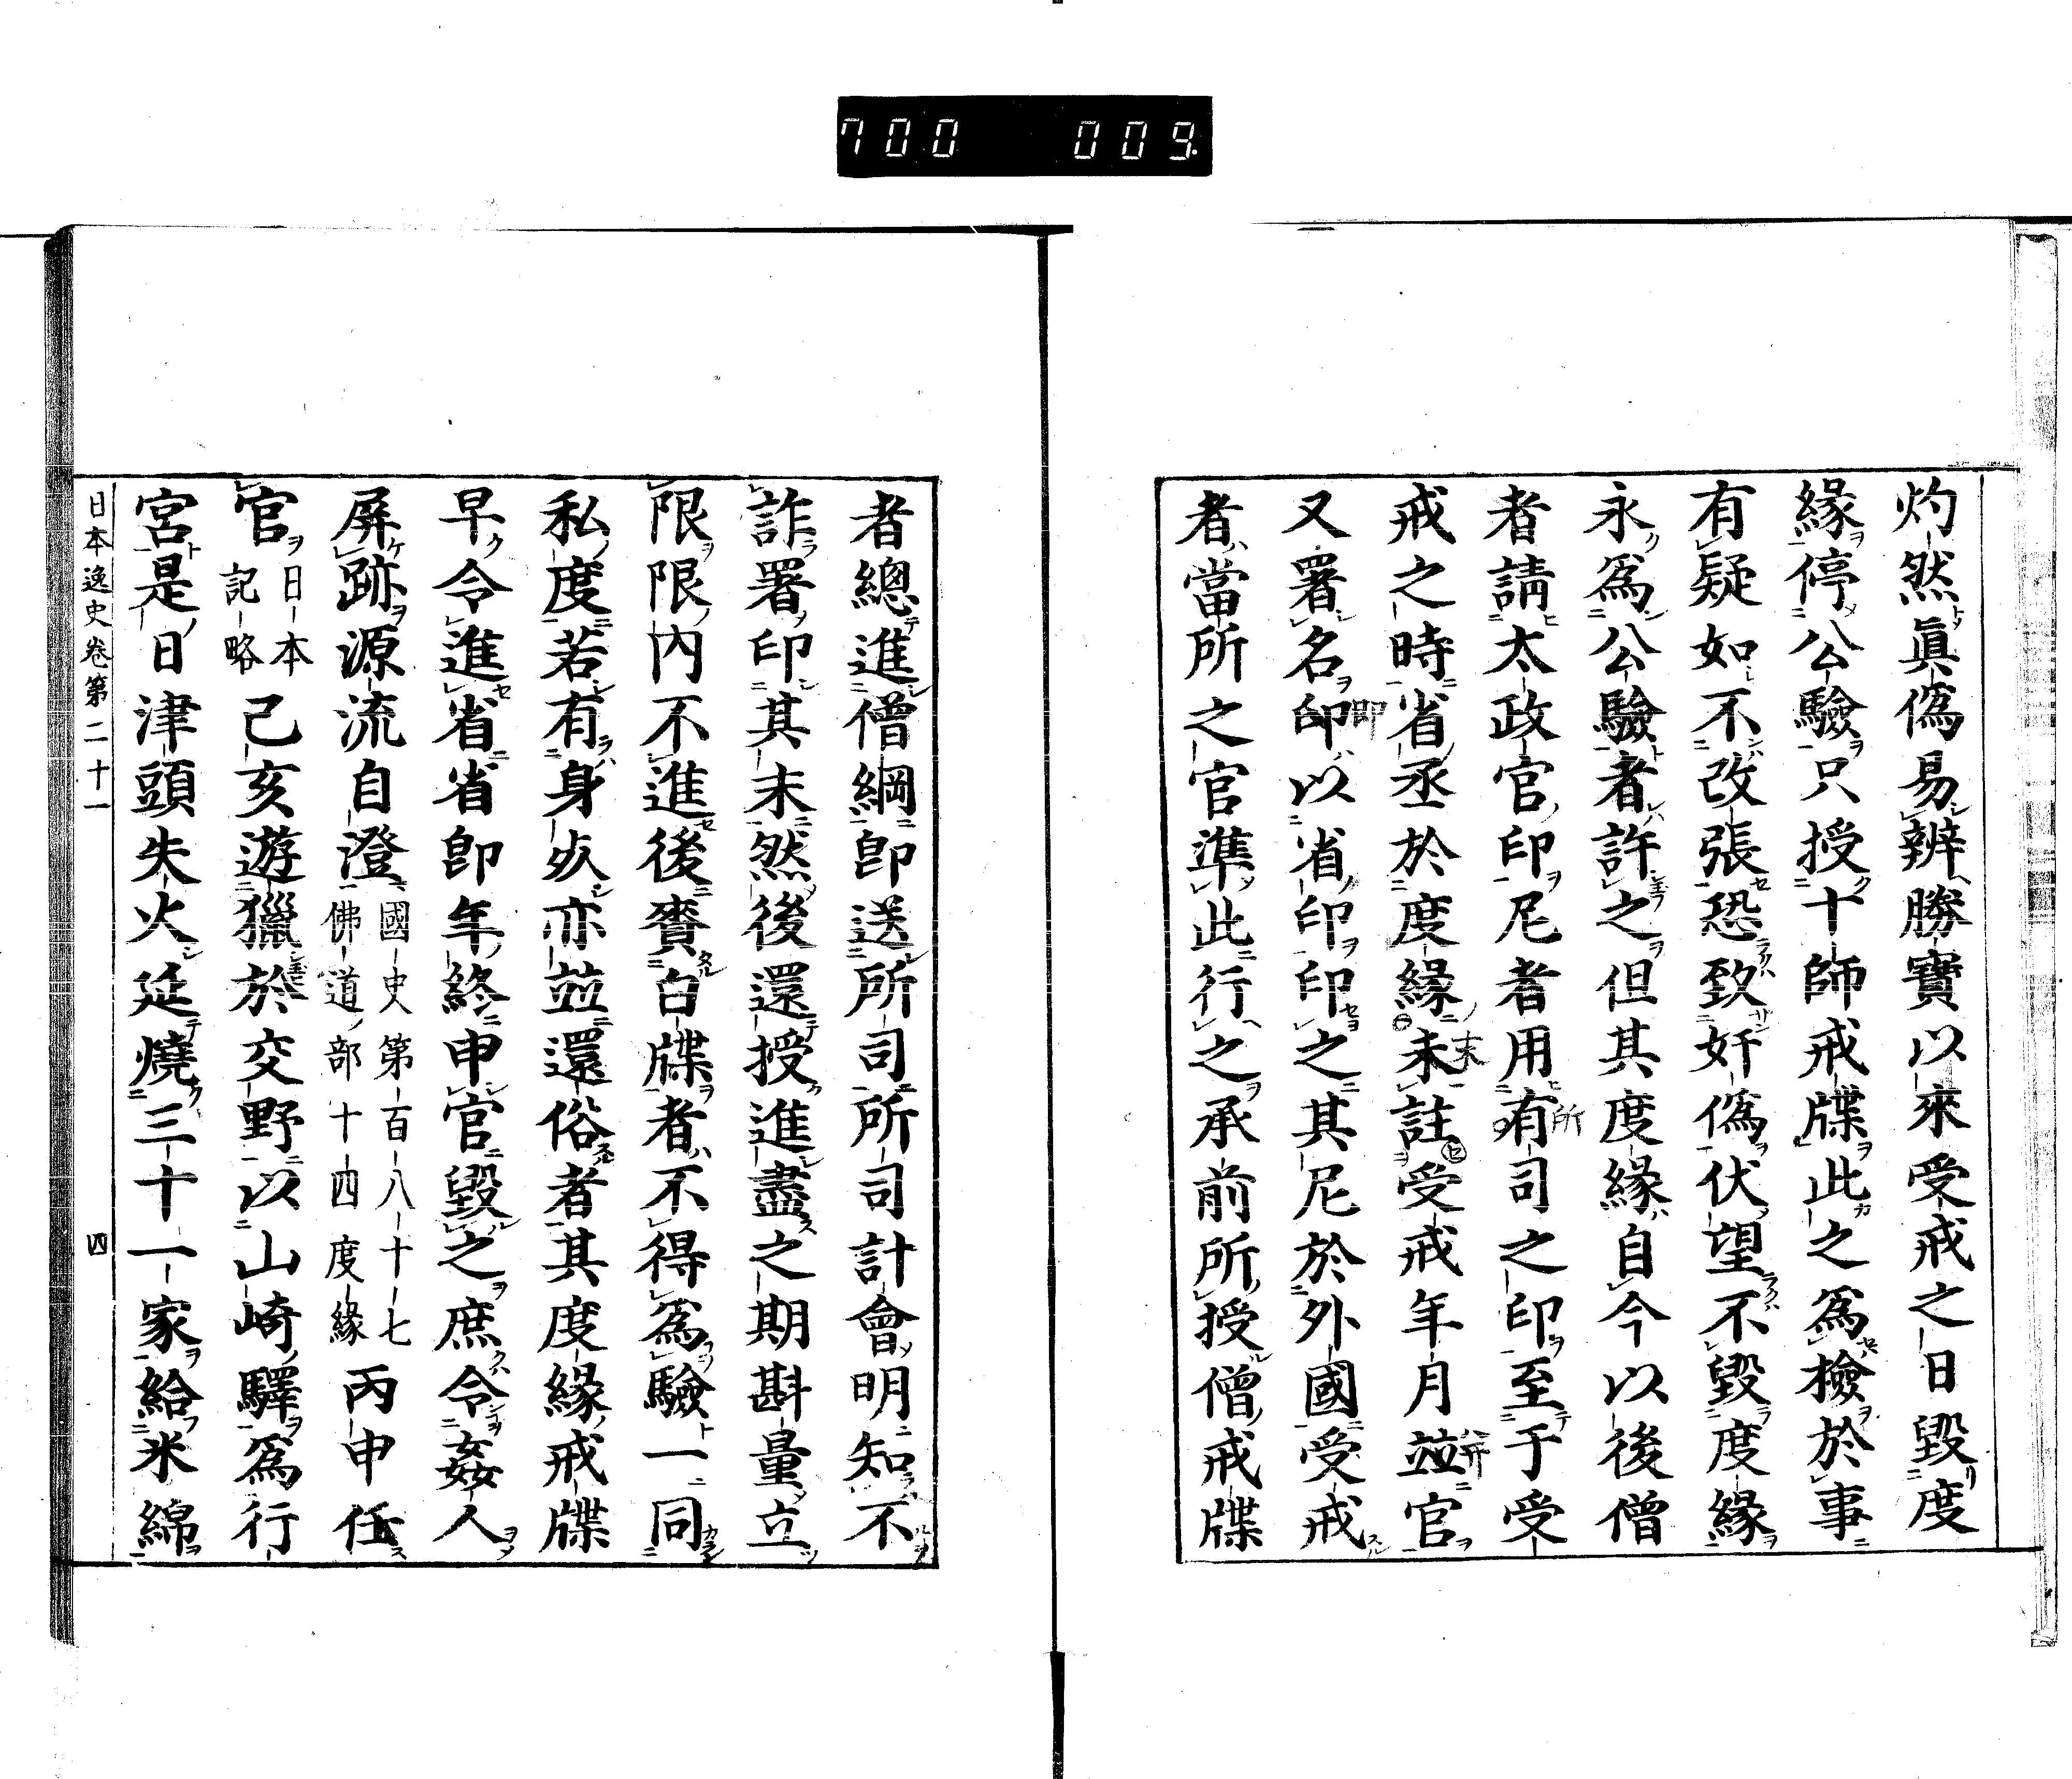 700 009
灼然眞僞易辨勝寶以來受戒之日毀度
緣停公驗只授十師戒牒此之爲檢於事
有疑如不改張恐致奸僞伏望不毀度緣
永爲公驗者許之但其度緣自今以後僧
者請太政官印尼者用有司之印至于受
戒之時省丞於度緣未註受戒年月並官
又署名印以省印印之其尼於外國受戒
者當所之官準此行之承前所授僧戒牒
者總進僧綱卽送所司所司計會明知不
詐署印其末然後還授進盡之期斟量立
限限內不進後賷白牒者不得爲驗一同
私度若有身死亦並還俗者其度緣戒牒
早令進省省卽年終申官毀之庶令姦人
屏跡源流自澄國史第百八十七佛道部十四度緣丙申任
官日本記略己亥遊獵於交野以山崎驛爲行
宮是日津頭失火延燒三十一家給米綿
日本逸史卷第二十一 四